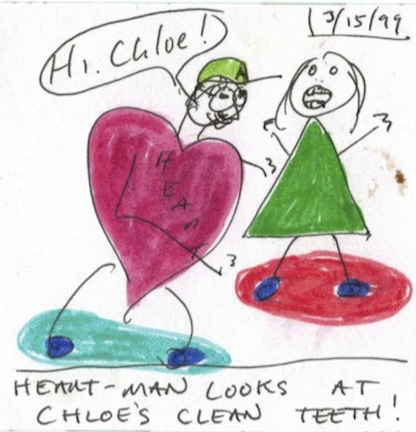 3/15/99
Hi, Chloe!
A
HEART
HEART-MAN LOOKS AT
CHLOE'S CLEAN TEETH!